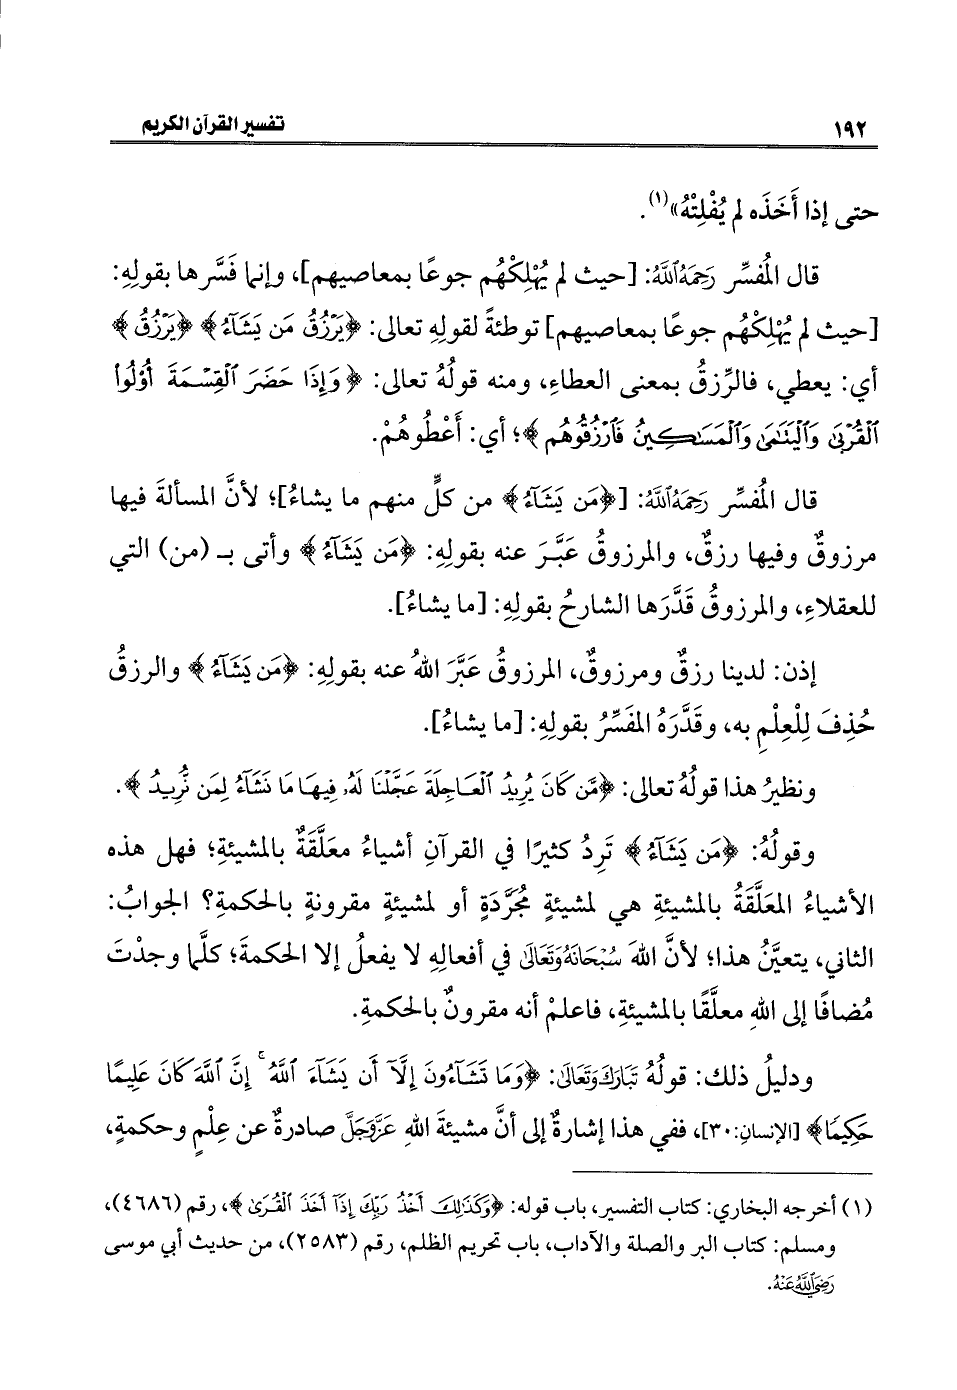 ١٩٢
تفسير القرآن الكريم
حتى إذا أَخَذَه لم يُفْلِتْهُ»(١).
قال المُفسِّر رَحِمَهُ ٱللَّهُ: [حيث لم يُهْلِكْهُم جوعًا بمعاصيهم]، وإنما فَسَّرها بقولِهِ:
[حيث لم يُهْلِكْهُم جوعًا بمعاصيهم] توطئةً لقولِهِ تعالى: ﴿يَرْزُقُ مَن يَشَآءُ﴾ ﴿يَرْزُقُ﴾
أي: يعطي، فالرِّزقُ بمعنى العطاءِ، ومنه قولُهُ تعالى: ﴿وَإِذَا حَضَرَ ٱلْقِسْمَةَ أُوْلُواْ
ٱلْقُرْبَىٰ وَٱلْيَتَٰمَىٰ وَٱلْمَسَٰكِينُ فَٱرْزُقُوهُم﴾؛ أي: أَعْطُوهُمْ.
قال المُفسِّر رَحِمَهُ ٱللَّهُ: [﴿مَن يَشَآءُ﴾ من كلٍّ منهم ما يشاءُ]؛ لأنَّ المسألةَ فيها
مرزوقٌ وفيها رزقٌ، والمرزوقُ عَبَّرَ عنه بقولِهِ: ﴿مَن يَشَآءُ﴾ وأتى بـ (من) التي
للعقلاءِ، والمرزوقُ قَدَّرَها الشارحُ بقولِهِ: [ما يشاءُ].
إذن: لدينا رزقٌ ومرزوقٌ، المرزوقُ عَبَّرَ اللهُ عنه بقولِهِ: ﴿مَن يَشَآءُ﴾ والرزقُ
حُذِفَ لِلْعِلْمِ به، وقَدَّرَهُ المفَسِّرُ بقولِهِ: [ما يشاءُ].
ونظيرُ هذا قولُهُ تعالى: ﴿مَّن كَانَ يُرِيدُ ٱلْعَاجِلَةَ عَجَّلْنَا لَهُۥ فِيهَا مَا نَشَآءُ لِمَن نُّرِيدُ﴾.
وقولُهُ: ﴿مَن يَشَآءُ﴾ تَرِدُ كثيرًا في القرآنِ أشياءُ معلَّقَةٌ بالمشيئةِ؛ فهل هذه
الأشياءُ المعَلَّقَةُ بالمشيئةِ هي لمشيئةٍ مُجرَّدَةٍ أو لمشيئةٍ مقرونةٍ بالحكمةِ؟ الجوابُ:
الثاني، يتعيَّنُ هذا؛ لأنَّ اللهَ سُبْحَانَهُ وَتَعَالَى في أفعالِهِ لا يفعلُ إلا الحكمةَ؛ كلَّما وجدْتَ
مُضافًا إلى اللهِ معلَّقًا بالمشيئةِ، فاعلمْ أنه مقرونٌ بالحكمةِ.
ودليلُ ذلك: قولُهُ تَبَارَكَ وَتَعَالَى: ﴿وَمَا تَشَآءُونَ إِلَّآ أَن يَشَآءَ ٱللَّهُ ۚ إِنَّ ٱللَّهَ كَانَ عَلِيمًا
حَكِيمًا﴾ [الإنسان:٣٠]، ففي هذا إشارةٌ إلى أنَّ مشيئةَ اللهِ عَزَّوَجَلَّ صادرةٌ عن عِلْمٍ وحكمةٍ،
(١) أخرجه البخاري: كتاب التفسير، باب قوله: ﴿وَكَذَٰلِكَ أَخْذُ رَبِّكَ إِذَآ أَخَذَ ٱلْقُرَىٰ﴾، رقم (٤٦٨٦)،
ومسلم: كتاب البر والصلة والآداب، باب تحريم الظلم، رقم (٢٥٨٣)، من حديث أبي موسى
رَضِيَ ٱللَّهُ عَنْهُ.